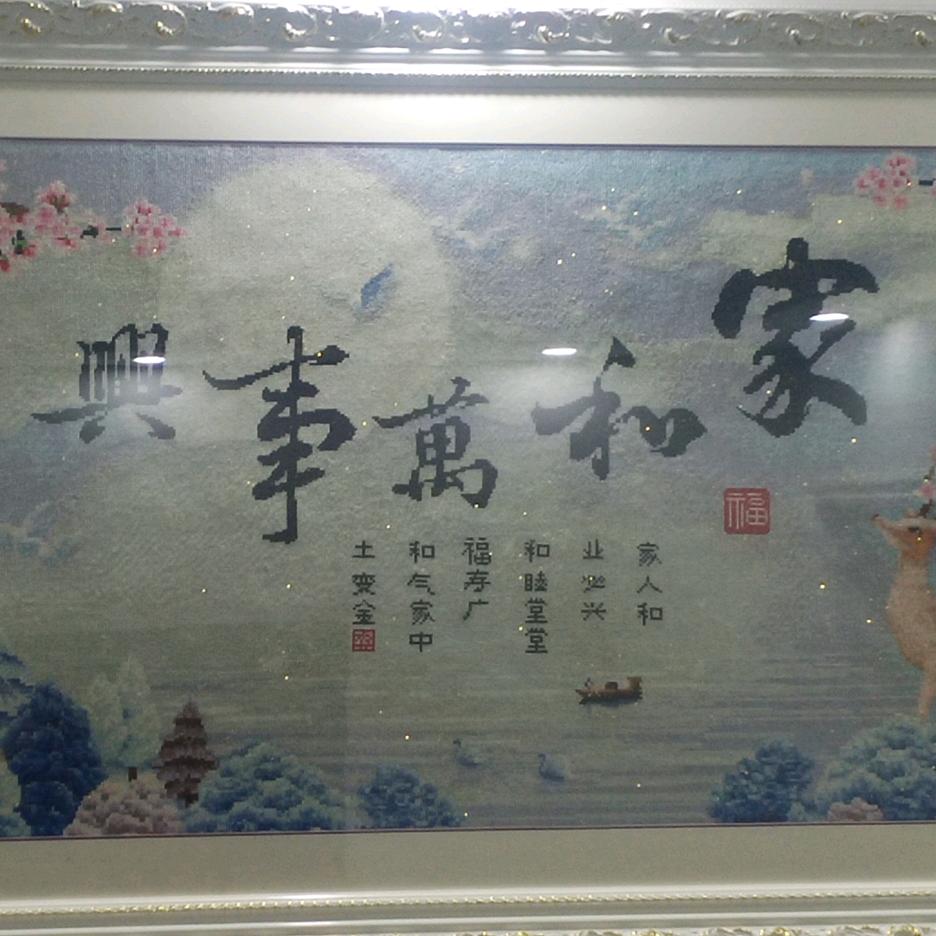 家和萬事興
福
家人和
业必兴
和睦堂堂
福寿广
和气家中
土变金